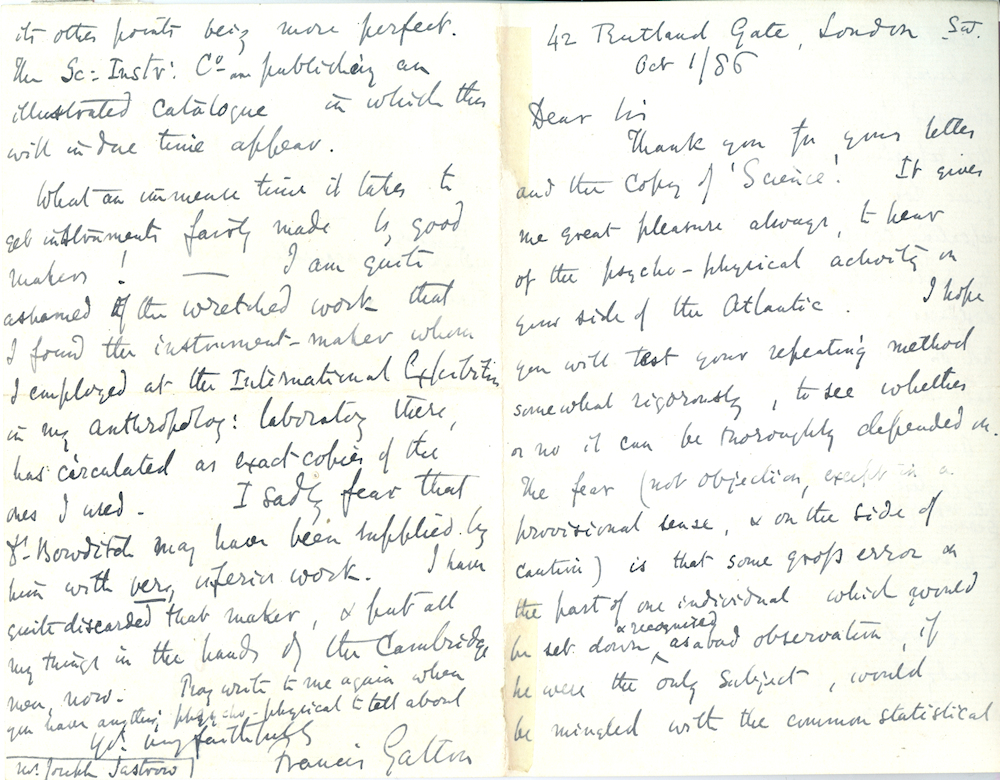 42 Rutland Gate, London SW.
Oct 1/86
Dear Sir
Thank you for your letter
and the copy of 'Science'. It gives
me great pleasure always, to hear
of the psycho-physical activity on
your side of the Atlantic. I hope
you will test your repeating method
somewhat rigorously, to see whether
or no it can be thoroughly depended on.
The fear (not objection, except in a
provisional sense, & on the side of
caution) is that some gross error on
the part of one individual which would
be set down & recognised as a bad observation, if
he were the only subject, would
be mingled with the common statistical
its other points being more perfect.
The Sc: Instr: Co are publishing an
illustrated catalogue in which this
will in due time appear.
What an immense time it takes to
get instruments fairly made by good
makers! — I am quite
ashamed of the wretched work that
I found the instrument-maker whom
I employed at the International Exhibition
in my anthropolog: laboratory there,
has circulated as exact copies of the
ones I used. I sadly fear that
Dr. Bowditch may have been supplied by
him with very inferior work. I have
quite discarded that maker, & put all
my things in the hands of the Cambridge
men, now. Pray write to me again when
you have anything psycho-physical to tell about
Yrs. very faithfully
Francis Galton
Mr. Joseph Jastrow